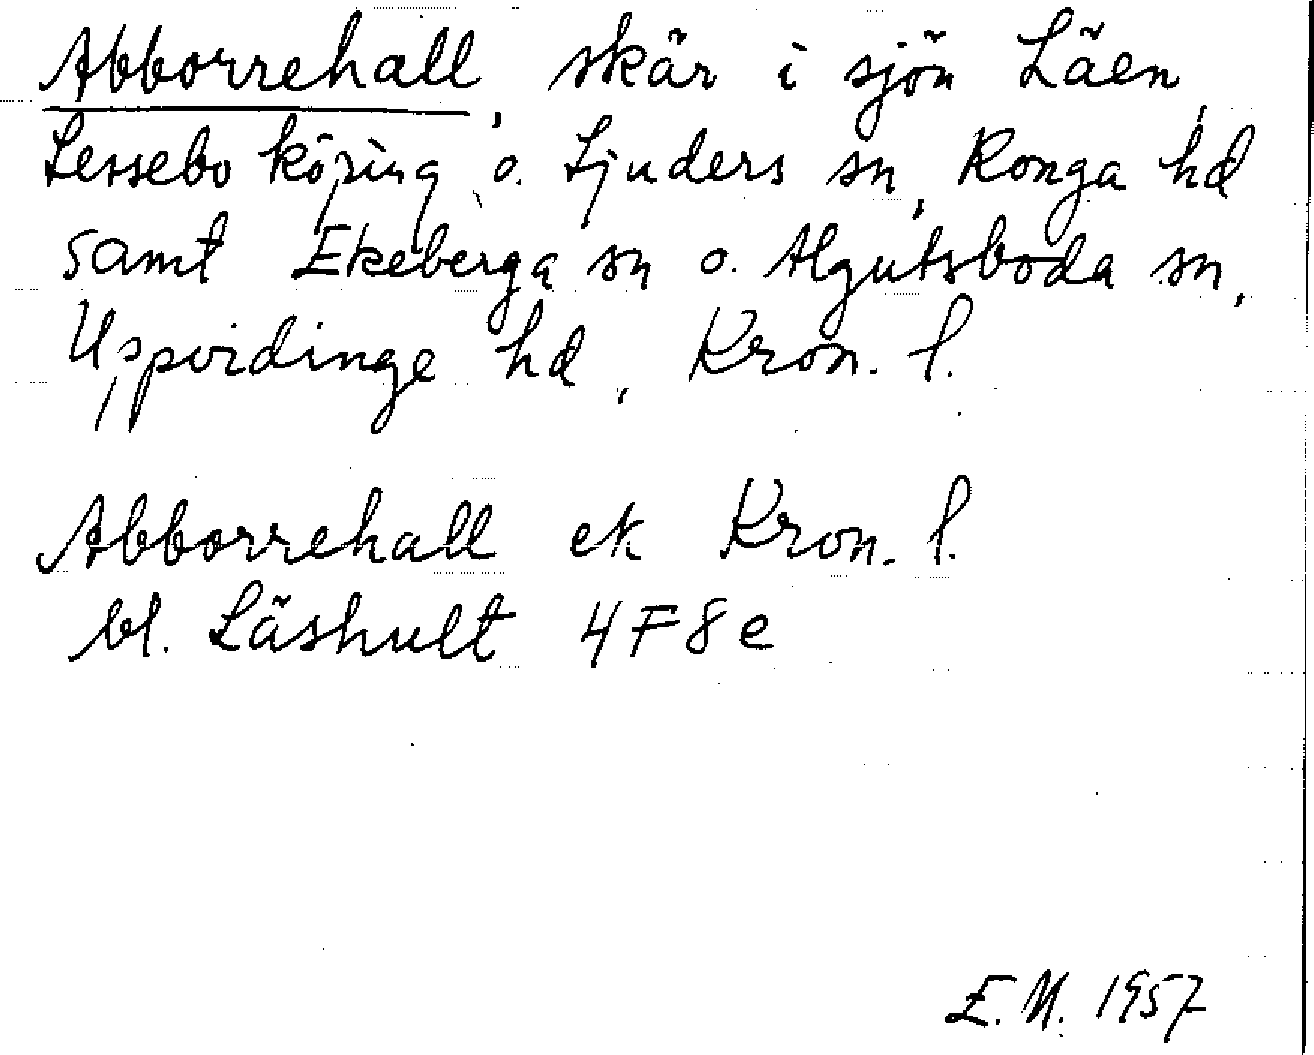 Abborrehall, skär i sjön Läen,
Lessebo köping o. Ljuders sn, Konga hd
samt Ekeberga sn o. Algutsboda sn,
Uppvidinge hd, Kron. l.
Abborrehall ek Kron. l.
bl. Läshult 4F8e
E.M. 1957